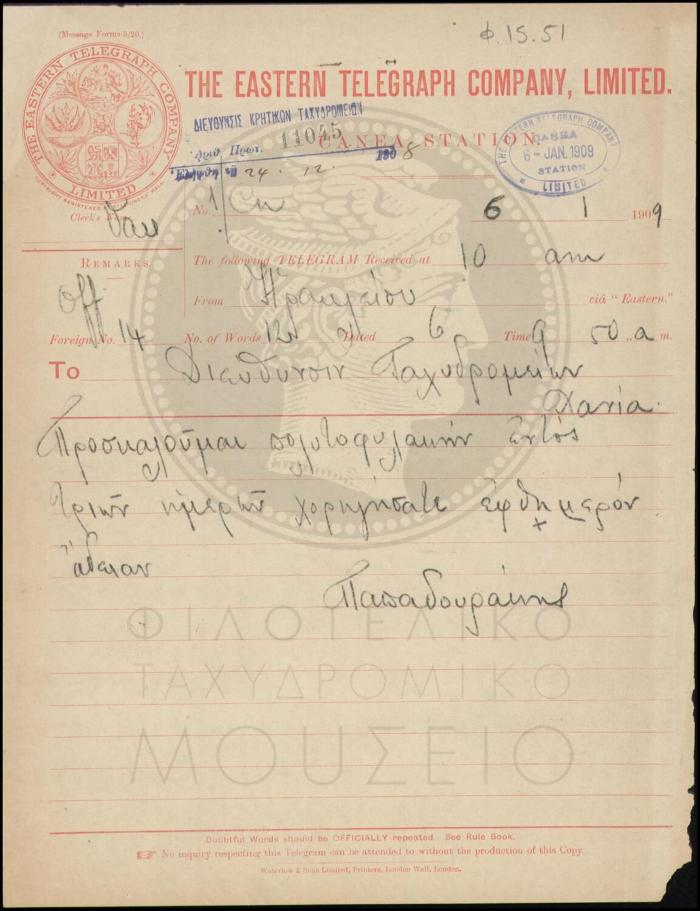 (Message Forms 8/20.)
Φ.15.51
THE EASTERN TELEGRAPH COMPANY
LIMITED
THE EASTERN TELEGRAPH COMPANY, LIMITED.
ΔΙΕΥΘΥΝΣΙΣ ΚΡΗΤΙΚΩΝ ΤΑΧΥΔΡΟΜΕΙΩΝ
Ἀριθ. Πρωτ. 11045
24 . 12 . 1908
CANEA STATION.
THE EASTERN TELEGRAPH COMPANY
CANEA
6 - JAN. 1909
STATION
LIMITED
Clerk's
No. 1
6 1 1909
REMARKS.
The following TELEGRAM Received at 10 am
Off
From Ηρακλείου viâ "Eastern."
Foreign No. 14 No. of Words 12 Dated 6 Time 9 50 a m.
To Διευθυνσιν Ταχυδρομείων
Χανία
Προσκαλοῦμαι πολιτοφυλακήν ἐντός
τριῶν ημερῶν χορηγήσατε ἐφθημερόν
ἄδειαν
Παπαδουράκης
ΦΙΛΟΤΕΛΙΚΟ
ΤΑΧΥΔΡΟΜΙΚΟ
ΜΟΥΣΕΙΟ
Doubtful Words should be OFFICIALLY repeated. See Rule Book.
No inquiry respecting this Telegram can be attended to without the production of this Copy.
Waterlow & Sons Limited, Printers, London Wall, London.